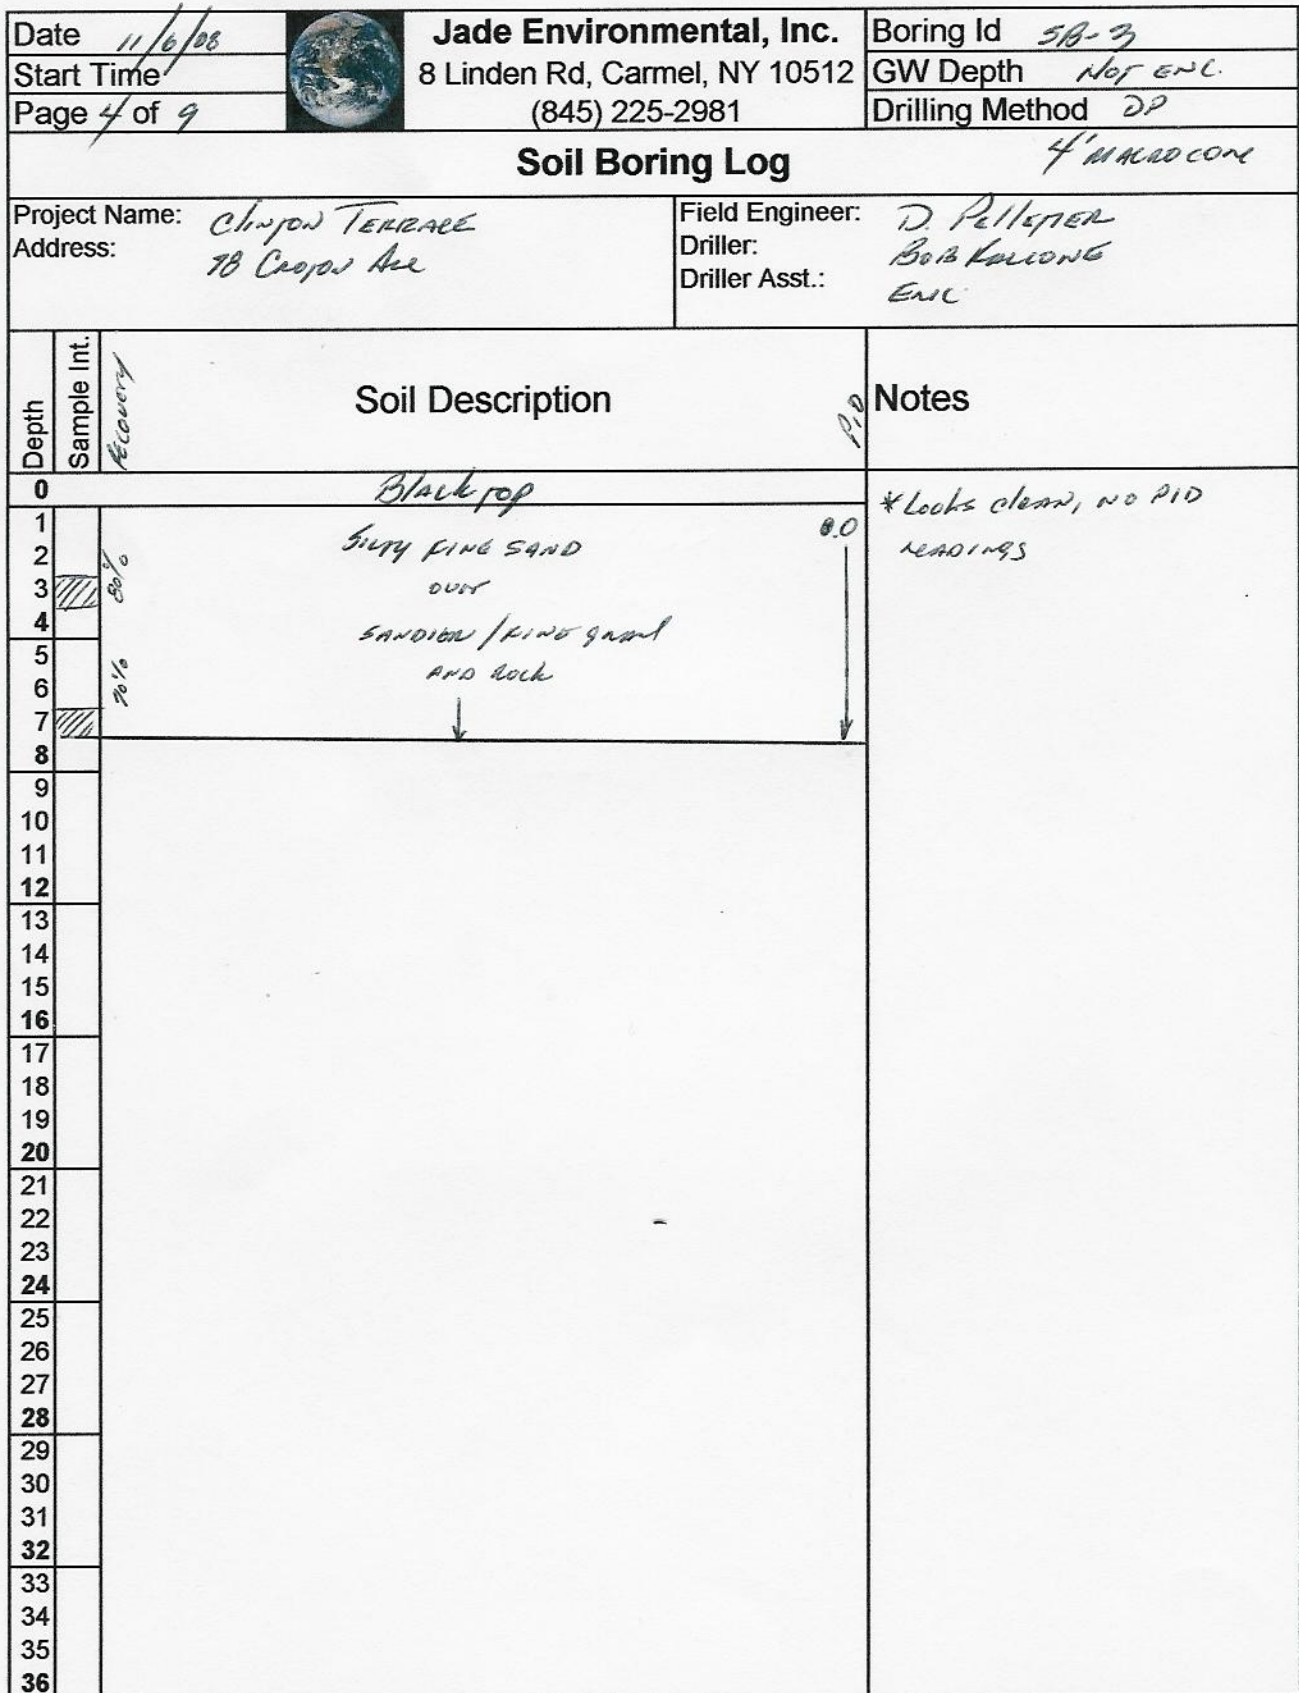 Date 11/6/08
Start Time
Page 4 of 9
Jade Environmental, Inc.
8 Linden Rd, Carmel, NY 10512
(845) 225-2981
Boring Id SB-3
GW Depth NOT ENC.
Drilling Method DP
4' MACROCORE
Soil Boring Log
Project Name: Clinton TERRACE
Address: 78 Croton Ave
Field Engineer: D. Pelletier
Driller: BOB
Driller Asst.: ERIC
Depth
Sample Int.
Recovery
Soil Description
PID
Notes
0
Blacktop
* Looks clean, NO PID
READINGS
1
0.0
2
SILTY FINE SAND
80%
3
OVER
4
SANDIER / FINE gravel
5
AND Rock
6
70%
7
8
9
10
11
12
13
14
15
16
17
18
19
20
21
22
23
24
25
26
27
28
29
30
31
32
33
34
35
36